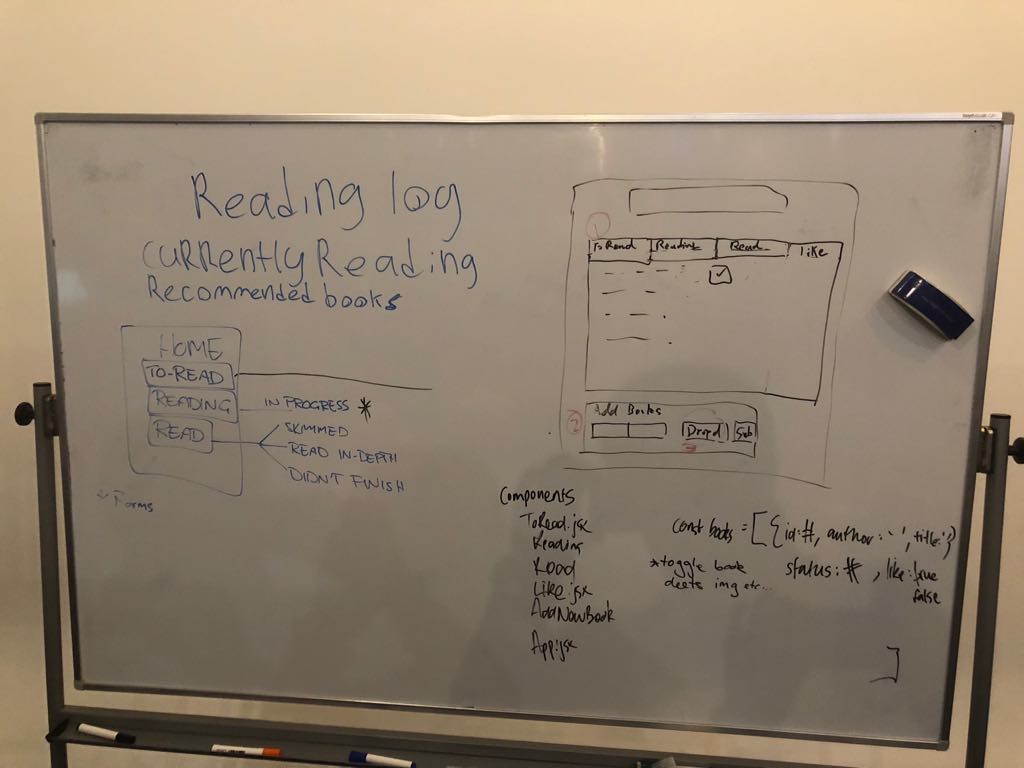 Reading log
Currently Reading
Recommended books
HOME
TO-READ
READING
IN PROGRESS *
READ
SKIMMED
READ IN-DEPTH
DIDNT FINISH
Forms
1
To Read Reading Read Like
2
Add Books
Dropd Sub
3
Components
ToRead.jsx
Reading
Read
Like.jsx
AddNewBook
App.jsx
const books = [{id:#, author: '', title:'}
status:#, like:true
false
*toggle book
deets img etc...
]